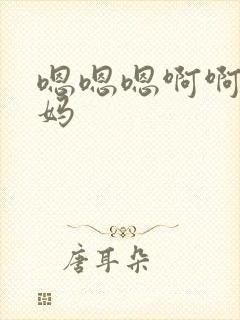 嗯嗯嗯啊啊
妈
唐耳朵